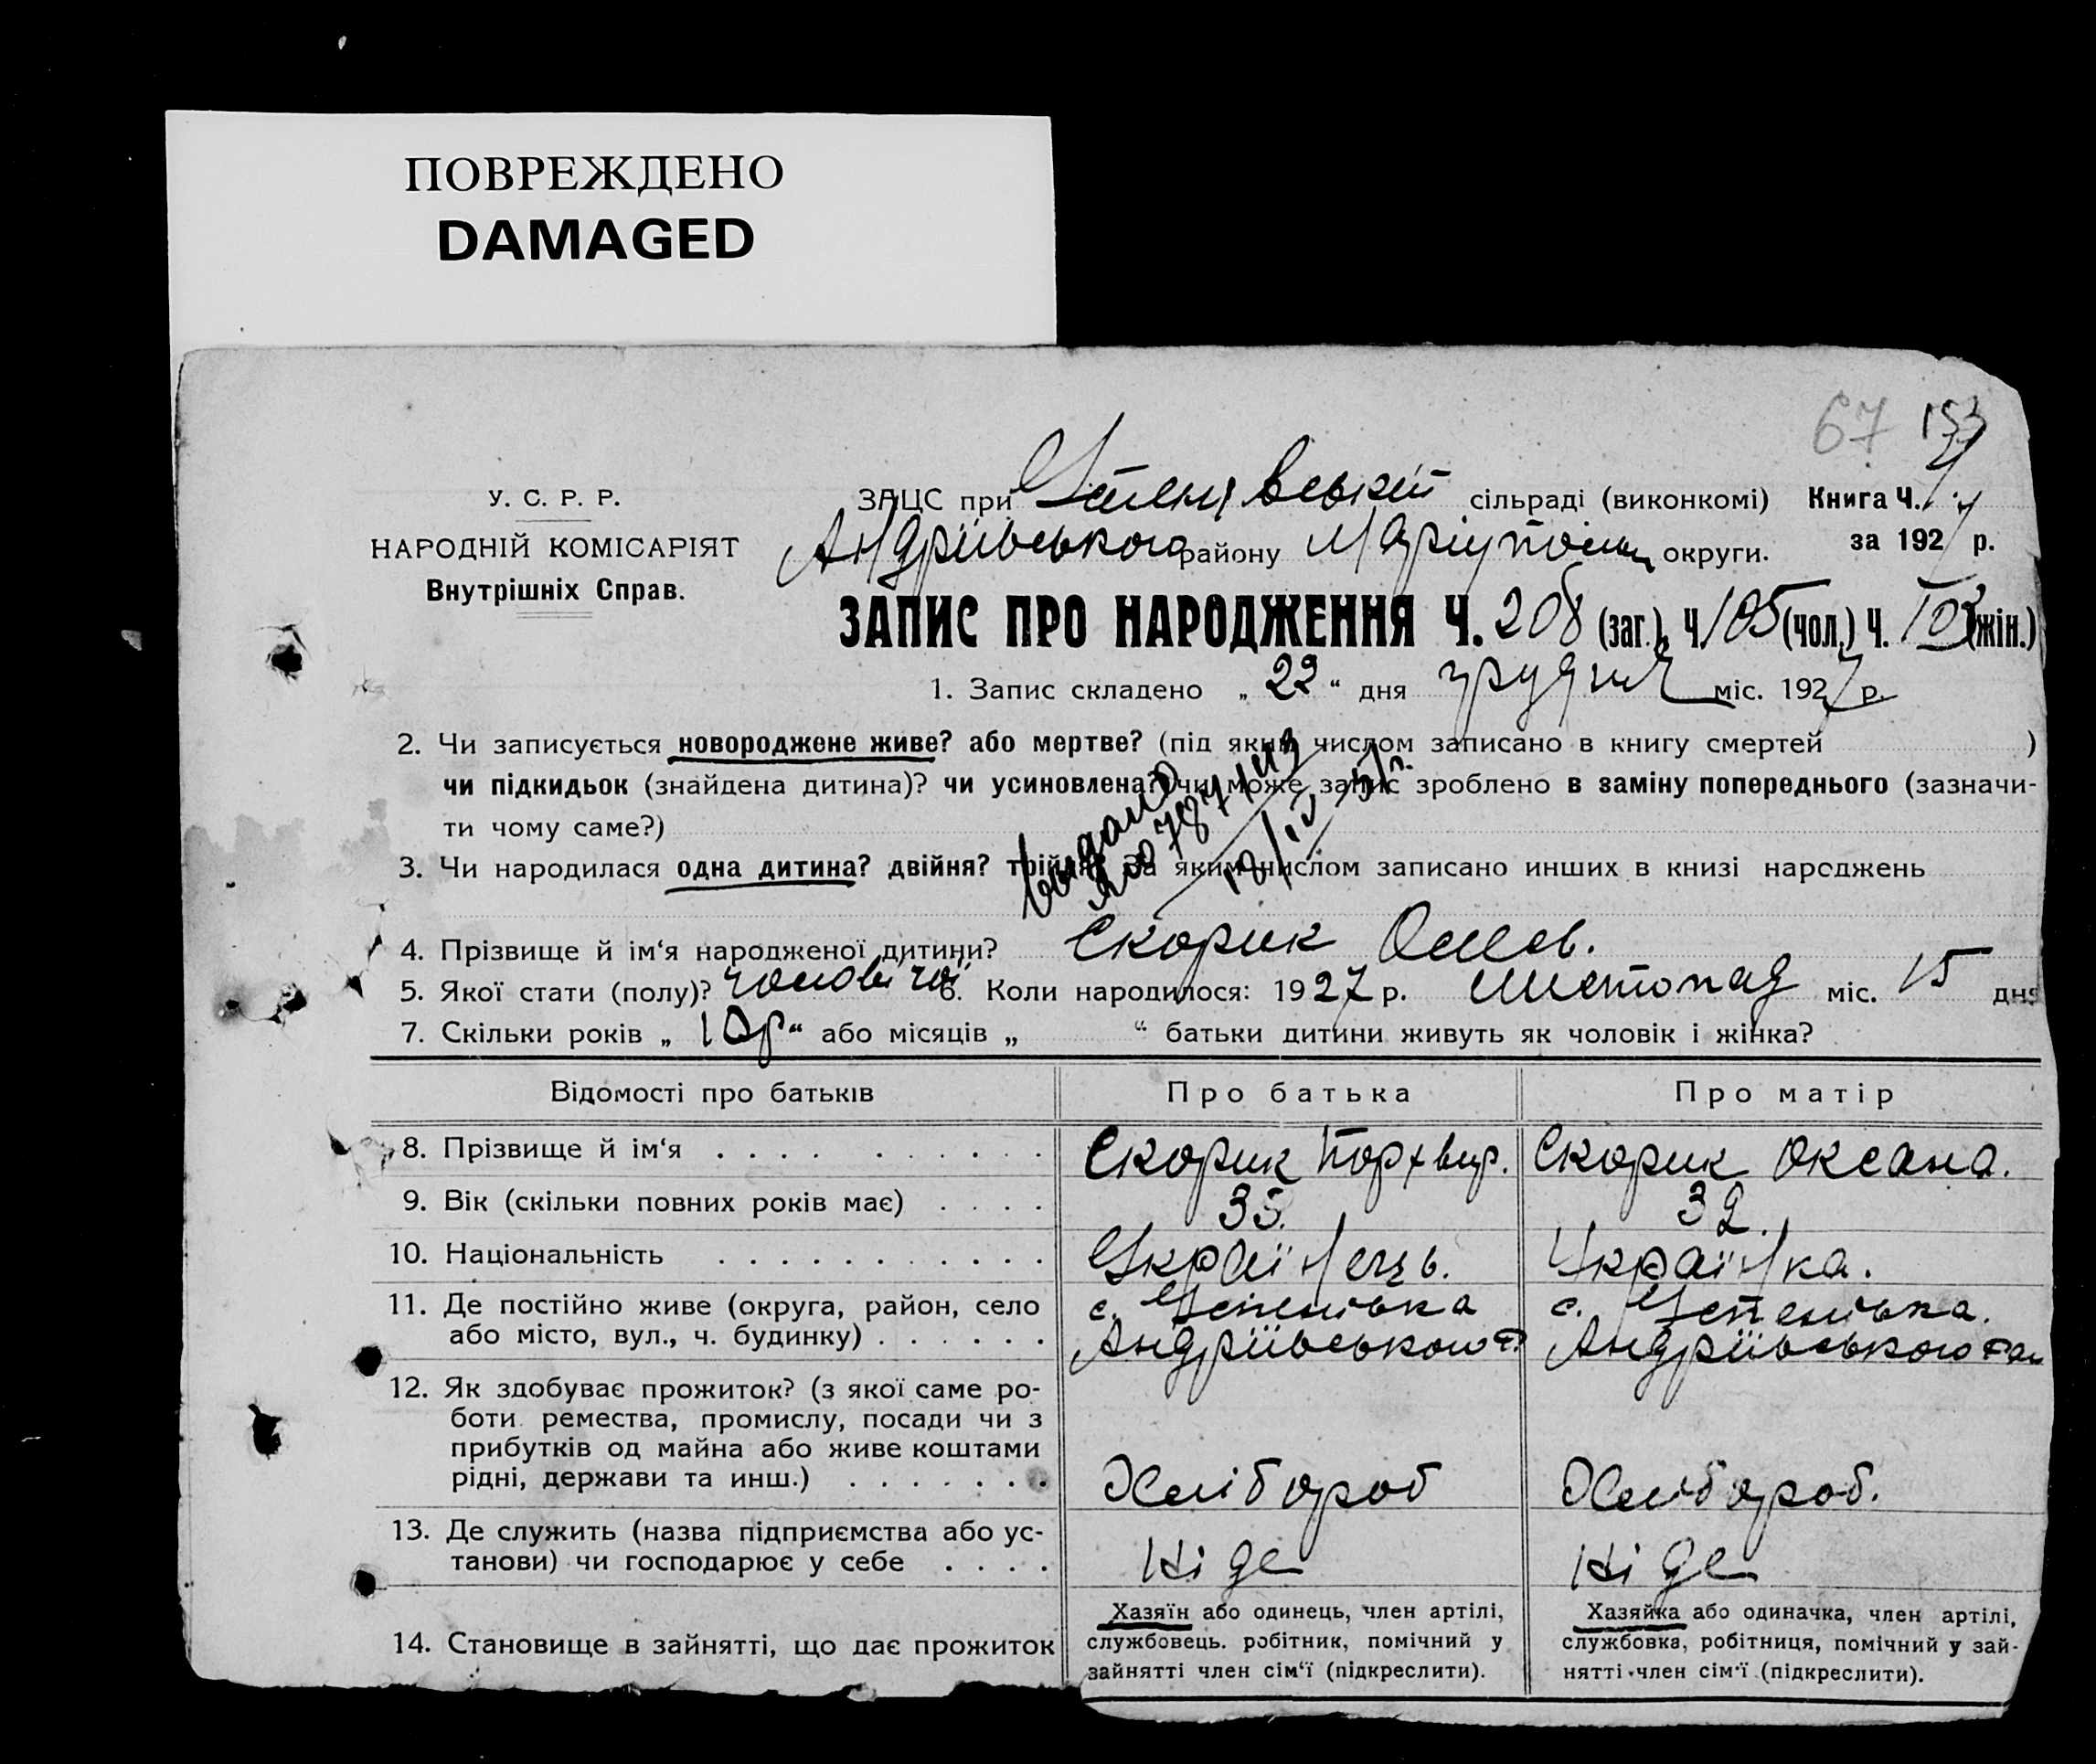 ПОВРЕЖДЕНО
DAMAGED
67 153
У. С. Р. Р.
НАРОДНІЙ КОМІСАРІЯТ
Внутрішніх Справ.
ЗАЦС при Успенівській сільраді (виконкомі) Книга Ч.
Андріївського району Маріупольськ округи. за 1927 р.
ЗАПИС ПРО НАРОДЖЕННЯ Ч. 208 (заг.), Ч. 105 (чол.) Ч. 103 (жін.)
1. Запис складено „ 22 “ дня грудня міс. 1927 р.
2. Чи записується новороджене живе? або мертве? (під яким числом записано в книгу смертей )
чи підкидьок (знайдена дитина)? чи усиновлена? чи може запис зроблено в заміну попереднього (зазначи-
ти чому саме?)
3. Чи народилася одна дитина? двійня? трійня? За яким числом записано инших в книзі народжень
4. Прізвище й ім‘я народженої дитини? Скорик
5. Якої стати (полу)? чоловічої 6. Коли народилося: 1927 р. Листопад міс. 15 дня
7. Скільки років „ 10р “ або місяців „ “ батьки дитини живуть як чоловік і жінка?
Відомості про батьків Про батька Про матір
8. Прізвище й ім‘я . . . . . . . . . . Скорик Порхвир. Скорик Оксана.
9. Вік (скільки повних років має) . . . . 35. 32.
10. Національність . . . . . . . . . . . Українець. Українка.
11. Де постійно живе (округа, район, село с. Успенівка с. Успенівка.
або місто, вул., ч. будинку) . . . . . . Андріївського р. Андріївського рай
12. Як здобуває прожиток? (з якої саме ро-
боти ремества, промислу, посади чи з
прибутків од майна або живе коштами
рідні, держави та инш.) . . . . . . . Хлібороб Хлібороб.
13. Де служить (назва підприємства або ус-
танови) чи господарює у себе . . . . Ніде Ніде
14. Становище в зайнятті, що дає прожиток
Хазяїн або одинець, член артілі,
службовець. робітник, помічний у
зайнятті член сім‘ї (підкреслити).
Хазяйка або одиначка, член артілі,
службовка, робітниця, помічний у зай-
нятті член сім‘ї (підкреслити).